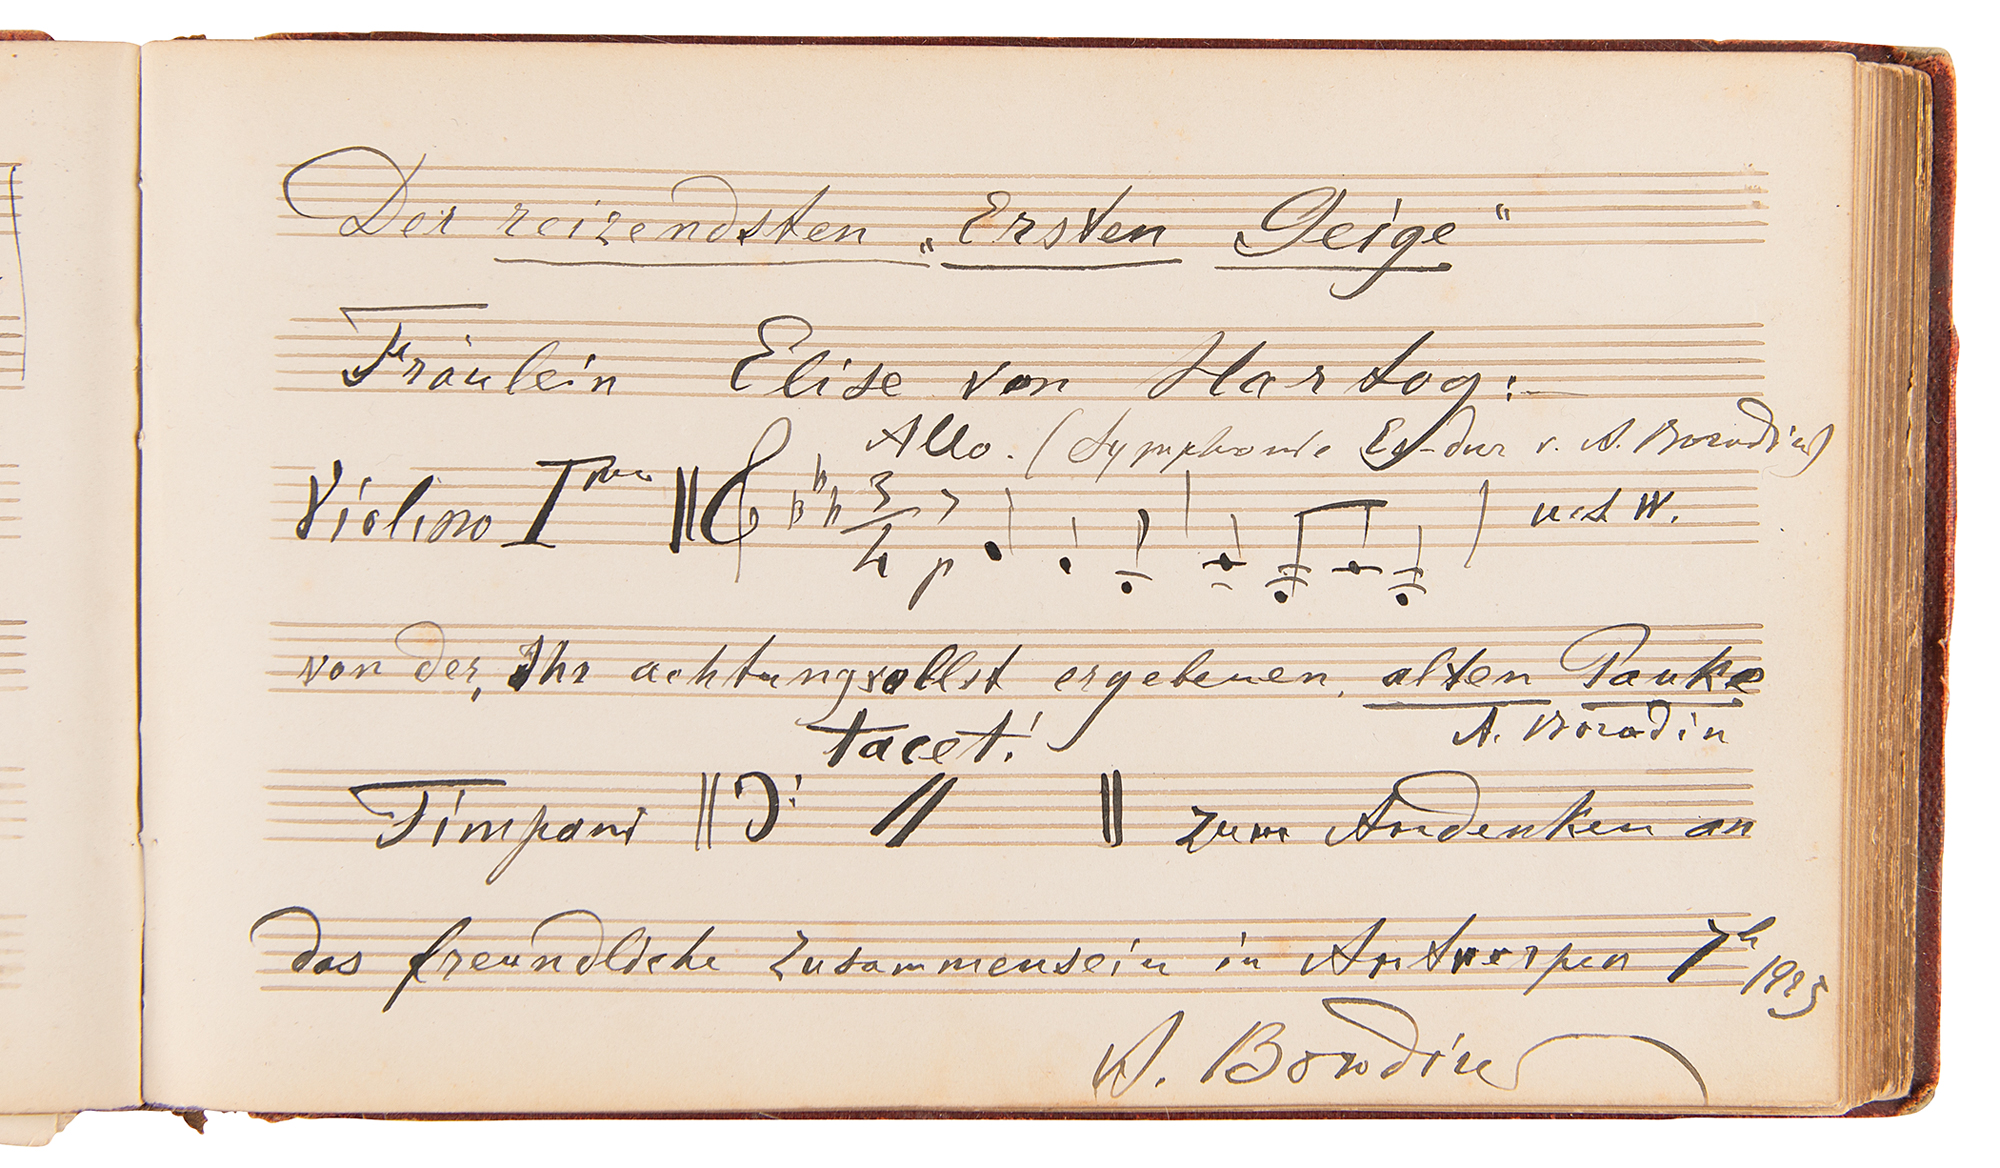 Der reizendsten „Ersten Geige“
Fräulein Elise von Hartog:
Allo. (Symphonie Es-dur v. A. Borodin)
Violino Imo 3/4 p u.s.w.
von der, Ihr achtungsvollst ergebenen, alten Pauke
A. Borodin
tacet!
Timpani zum Andenken an
das freundliche Zusammensein in Antwerpen
A. Borodin